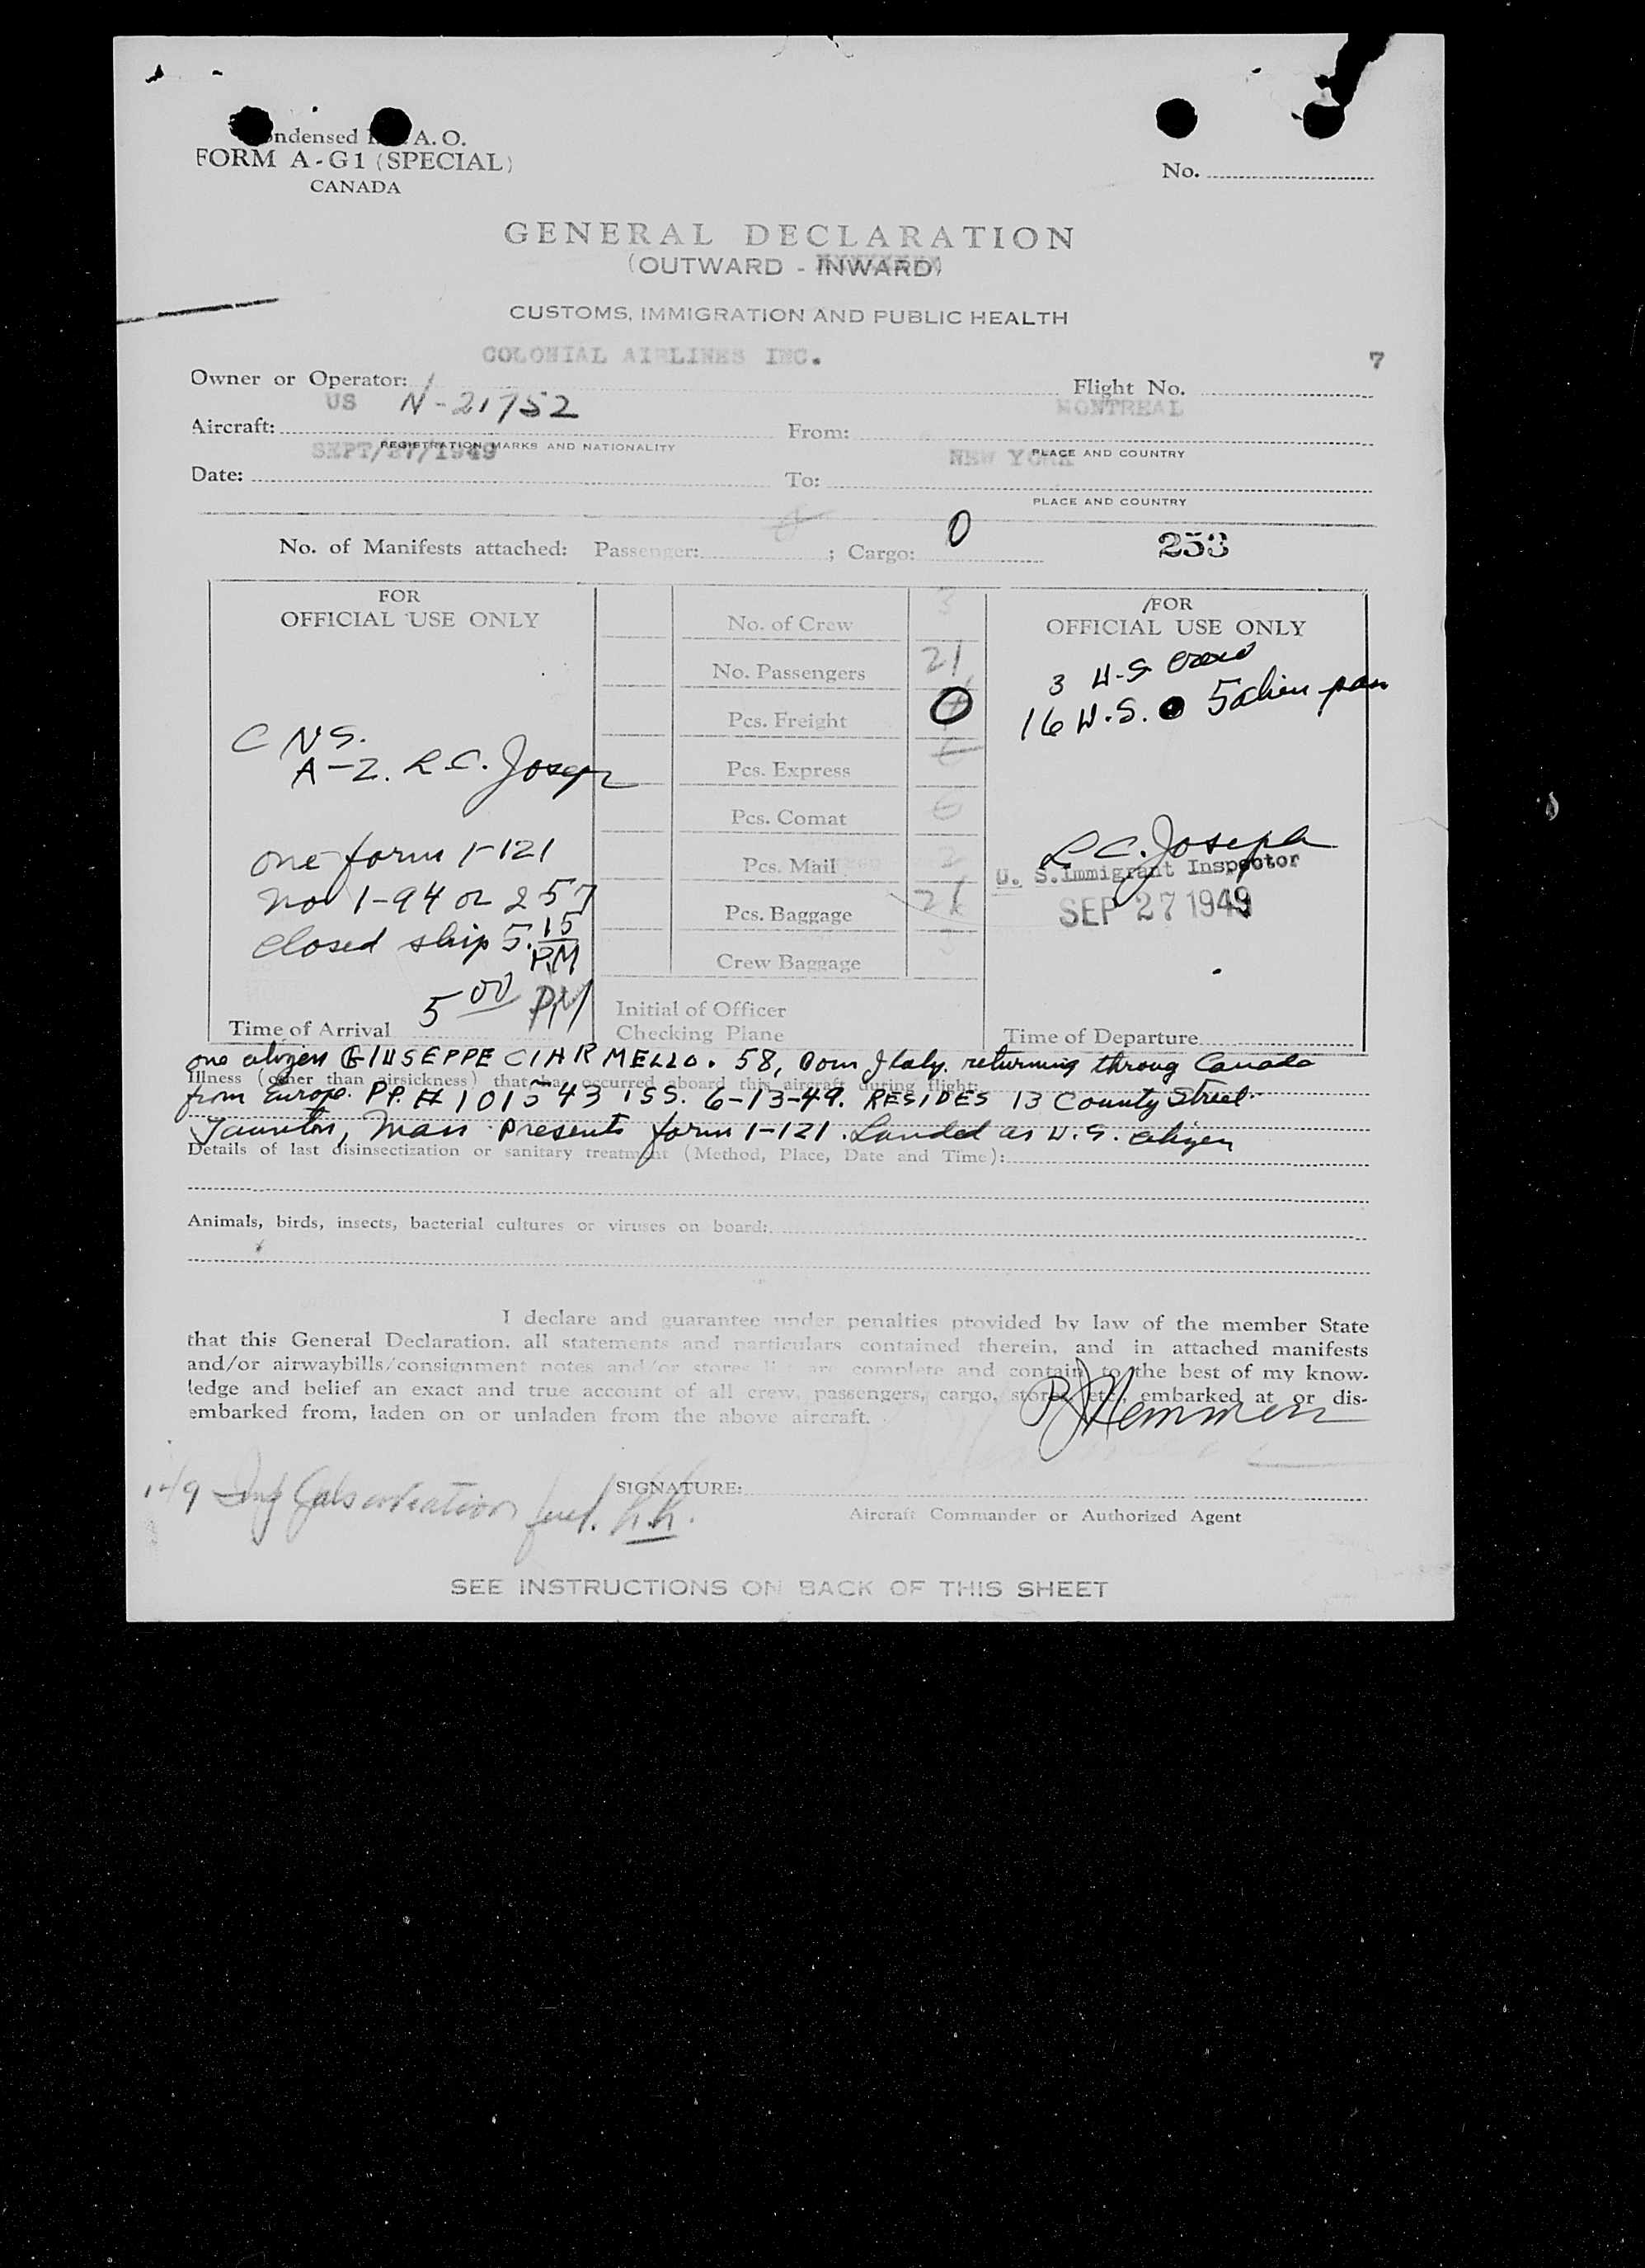 ndensed I. A. O.
FORM A-G1 (SPECIAL)
CANADA
No.
GENERAL DECLARATION
(OUTWARD - INWARD)
CUSTOMS, IMMIGRATION AND PUBLIC HEALTH
COLONIAL AIRLINES INC. 7
Owner or Operator: Flight No.
US N-21752 MONTREAL
Aircraft: From:
REGISTRATION MARKS AND NATIONALITY PLACE AND COUNTRY
SEPT/27/1949 NEW YORK
Date: To:
PLACE AND COUNTRY
No. of Manifests attached: Passenger: ; Cargo: 0 253
FOR
OFFICIAL USE ONLY
C NS.
A-2. R.C. Joseph
one form 1-121
no 1-94 or 257
closed ship 5.15
PM
5 00 PM
Time of Arrival
No. of Crew 3
No. Passengers 21
Pcs. Freight 0
Pcs. Express
Pcs. Comat
Pcs. Mail 2
Pcs. Baggage 21
Crew Baggage
Initial of Officer
Checking Plane
FOR
OFFICIAL USE ONLY
3 U-S Crew
16 U.S. 5 alien pas
R.C. Joseph
U. S. Immigrant Inspector
SEP 27 1949
Time of Departure
one citizen GIUSEPPE CIARMELLO. 58, born Italy. returning throug Canada
Illness (other than airsickness) that has occurred aboard this aircraft during flight:
from Europe. PP. # 101543 ISS. 6-13-49. RESIDES 13 County Street
Taunton, Mass Presents form 1-121. Landed as U.S. citizen
Details of last disinsectization or sanitary treatment (Method, Place, Date and Time):
Animals, birds, insects, bacterial cultures or viruses on board:
I declare and guarantee under penalties provided by law of the member State
that this General Declaration, all statements and particulars contained therein, and in attached manifests
and/or airwaybills/consignment notes and/or stores list are complete and contain to the best of my know-
ledge and belief an exact and true account of all crew, passengers, cargo, stores, etc., embarked at or dis-
embarked from, laden on or unladen from the above aircraft.
149 Imp Gals aviation fuel.
SIGNATURE:
Aircraft Commander or Authorized Agent
SEE INSTRUCTIONS ON BACK OF THIS SHEET